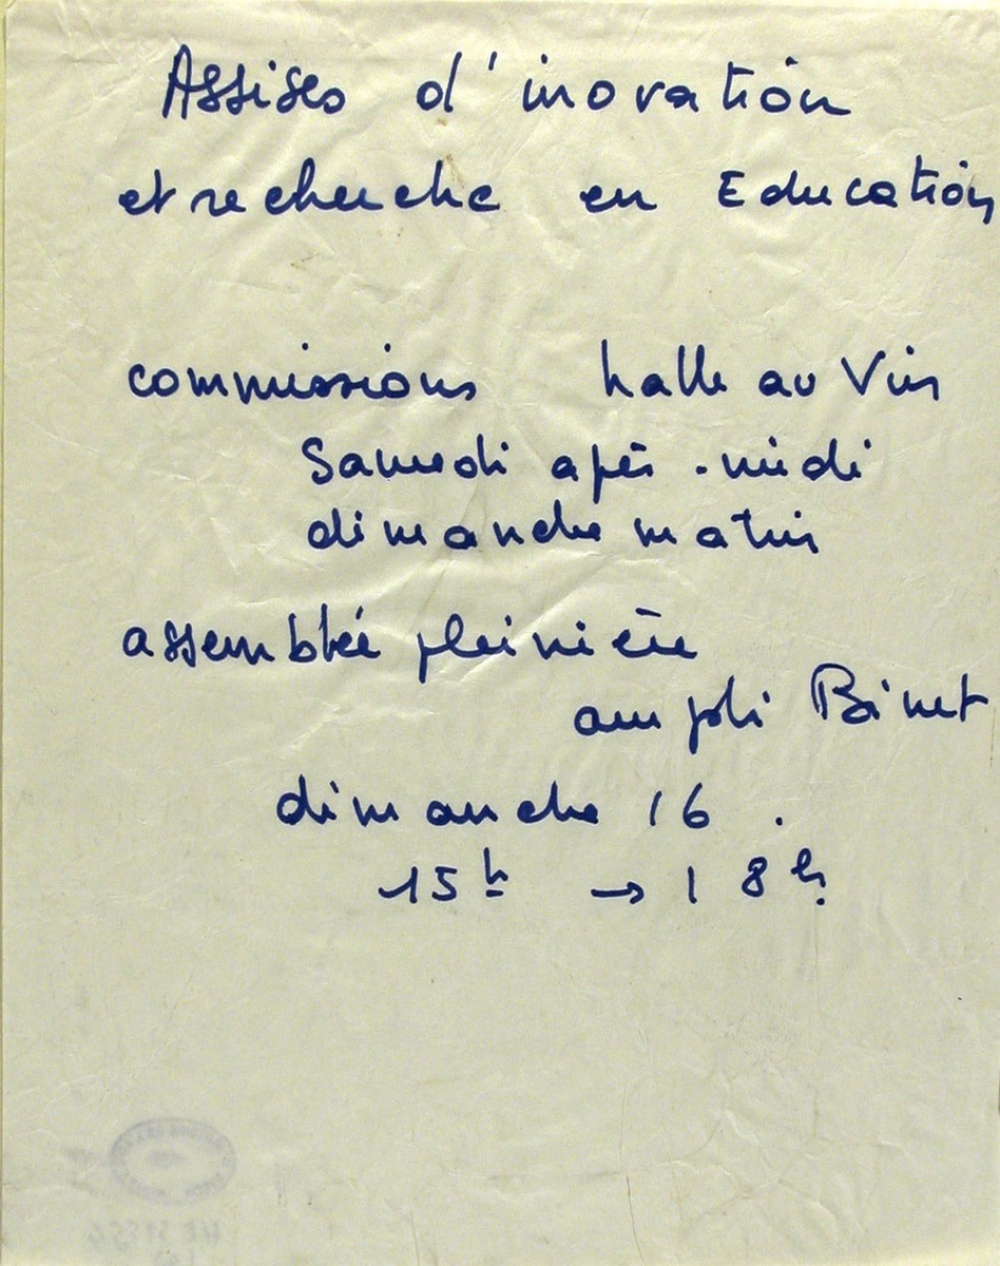 Assises d'inovation
et recherche en Education
commissions halle au Vin
Samedi après-midi
dimanche matin
assemblée pleinière
amphi Binet
dimanche 16.
15h → 18h